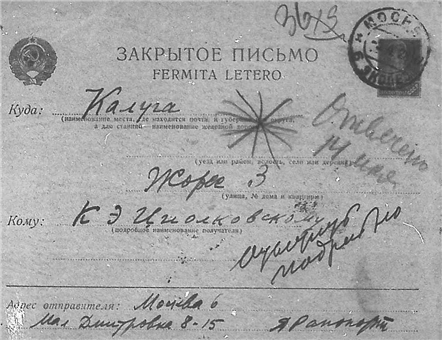 3613
МОСКВА
ЗАКРЫТОЕ ПИСЬМО
FERMITA LETERO
Куда: Калуга
(наименование места, где находится почта, и губернии или округа,
а для станций—наименование железной дороги)
Отвечено
14 мая
(уезд или район, волость, село или деревня)
Жорес 3
(улица, № дома и квартиры)
Кому: К Э Циолковскому
(подробное наименование получателя)
подробно
Адрес отправителя: Москва 6
Мал Дмитровка 8-15 Я Рапопорт